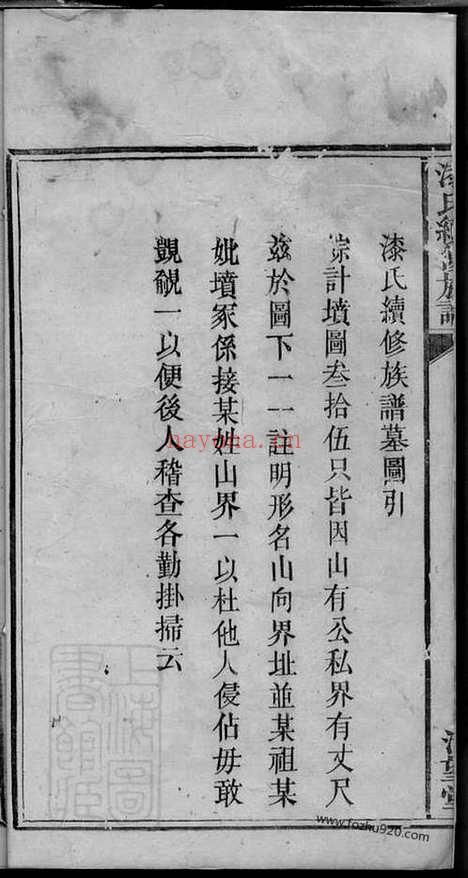 漆氏續修族譜墓圖引
綜計墳圖叁拾伍只皆因山有公私界有丈尺
茲於圖下一一註明形名山向界址並某祖某
妣墳冢係接某姓山界一以杜他人侵佔毋敢
覬覦一以便後人稽查各勤掛掃云
漆氏續修族譜
nayona.cn
www.fozhu920.com